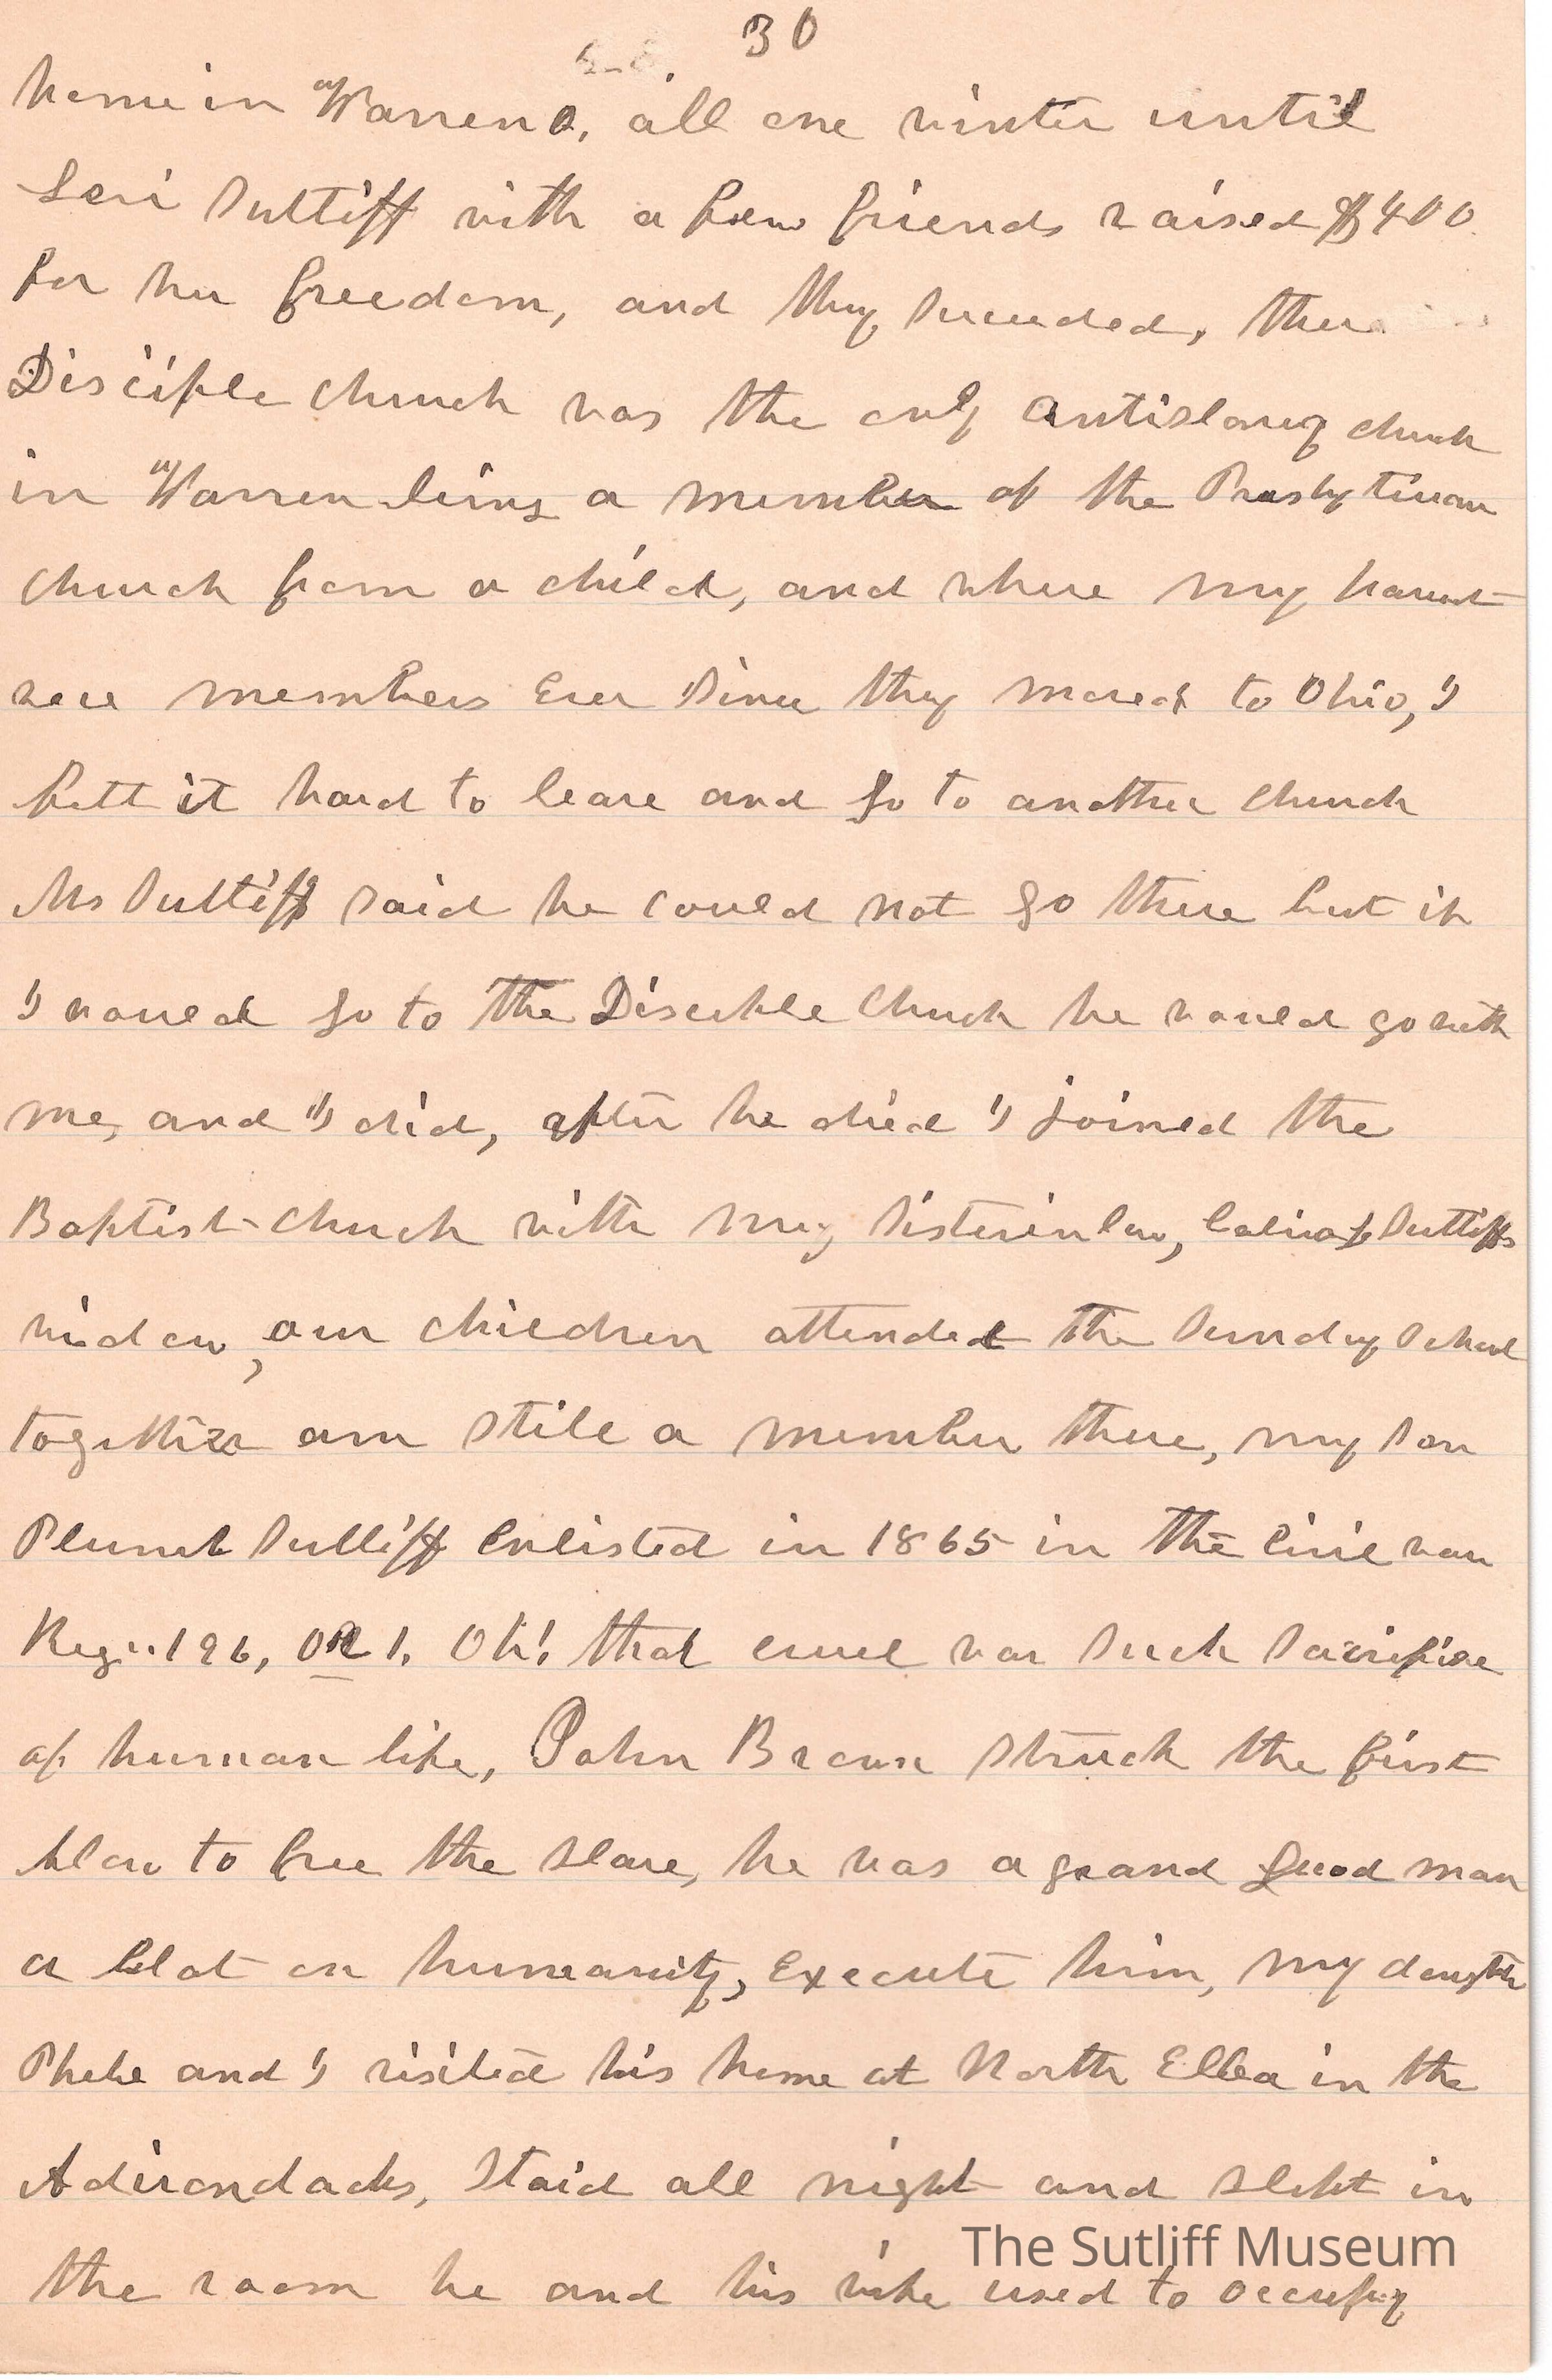 30
home in Warren O. all one winter until
Levi Sutliff with a few friends raised $400
for her freedom, and they succeeded, the
Disciple church was the only antislavery church
in Warren being a member of the Presbyterian
church from a child, and where my parent
were members Ever Since they moved to Ohio, I
felt it hard to leave and go to another church
Mr Sutliff said he could not go there but if
I would go to the Disciple Church he would go with
me, and I did, after he died I joined the
Baptist church with my Sisterinlaw, Calvin Sutliffs
widow, our children attended the Sunday School
together am still a member there, my Son
Plumb Sutliff Enlisted in 1865 in the Civil war
Regi. 196, O V I. Oh! that cruel war Such Sacrifice
of human life, John Brown Struck the first
blow to free the slave, he was a grand good man
a blot on humanity, Execute him, my daughter
Phebe and I visited his home at North Elba in the
Adirondacks, Staid all night and slept in
the room he and his wife used to occupy
The Sutliff Museum